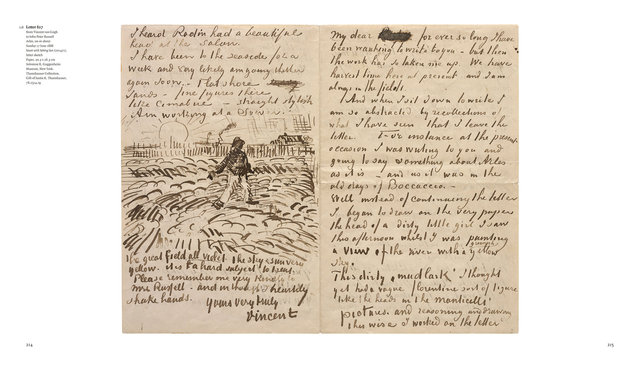 Letter 627
from Vincent van Gogh
to John Peter Russell
Arles, on or about
Sunday 17 June 1888
letter sketch
Solomon R. Guggenheim
Museum, New York.
Thannhauser Collection,
Gift of Justin K. Thannhauser,
I heard Rodin had a beautiful
head at the Salon.
I have been to the seaside for a
week and very likely am going thither
again soon. – Flat shore
sands – fine figures there
like Cimabue – straight stylish
Am working at a Sower.
the great field all violet the sky & sun very
yellow. it is a hard subject to treat.
Please remember me very kindly to
Mrs Russell – and in thought I heartily
shake hands.
Yours very truly
Vincent
My dear for ever so long I have
been wanting to write to you – but then
the work has so taken me up. We have
harvest time here at present and I am
always in the fields.
And when I sit down to write I
am so abstracted by recollections of
what I have seen that I leave the
letter. For instance at the present
occasion I was writing to you and
going to say something about Arles
as it is – and as it was in the
old days of Boccaccio. –
Well instead of continuing the letter
I began to draw on the very paper
the head of a dirty little girl I saw
this afternoon whilst I was painting
a view of the river with a greenish yellow
sky.
This dirty "mudlark" I thought
yet had a vague florentine sort of figure
like the heads in the monticelli
pictures. and reasoning and drawing
this wise I worked on the letter
224
225